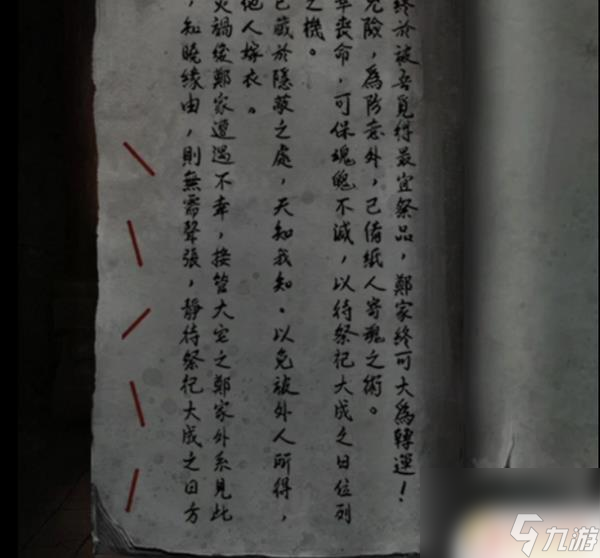 終於被吾覓得最宜祭品，鄭家終可大為轉運！
危險，為防意外，已備紙人寄魂之術。
幸喪命，可保魂魄不滅，以待祭祀大成之日位列
之機。
已藏於隱蔽之處，天知我知。以免被外人所得，
他人嫁衣。
災禍後鄭家遭遇不幸，接管大宅之鄭家外系見此
，知曉緣由，則無需聲張，靜待祭祀大成之日方
九游